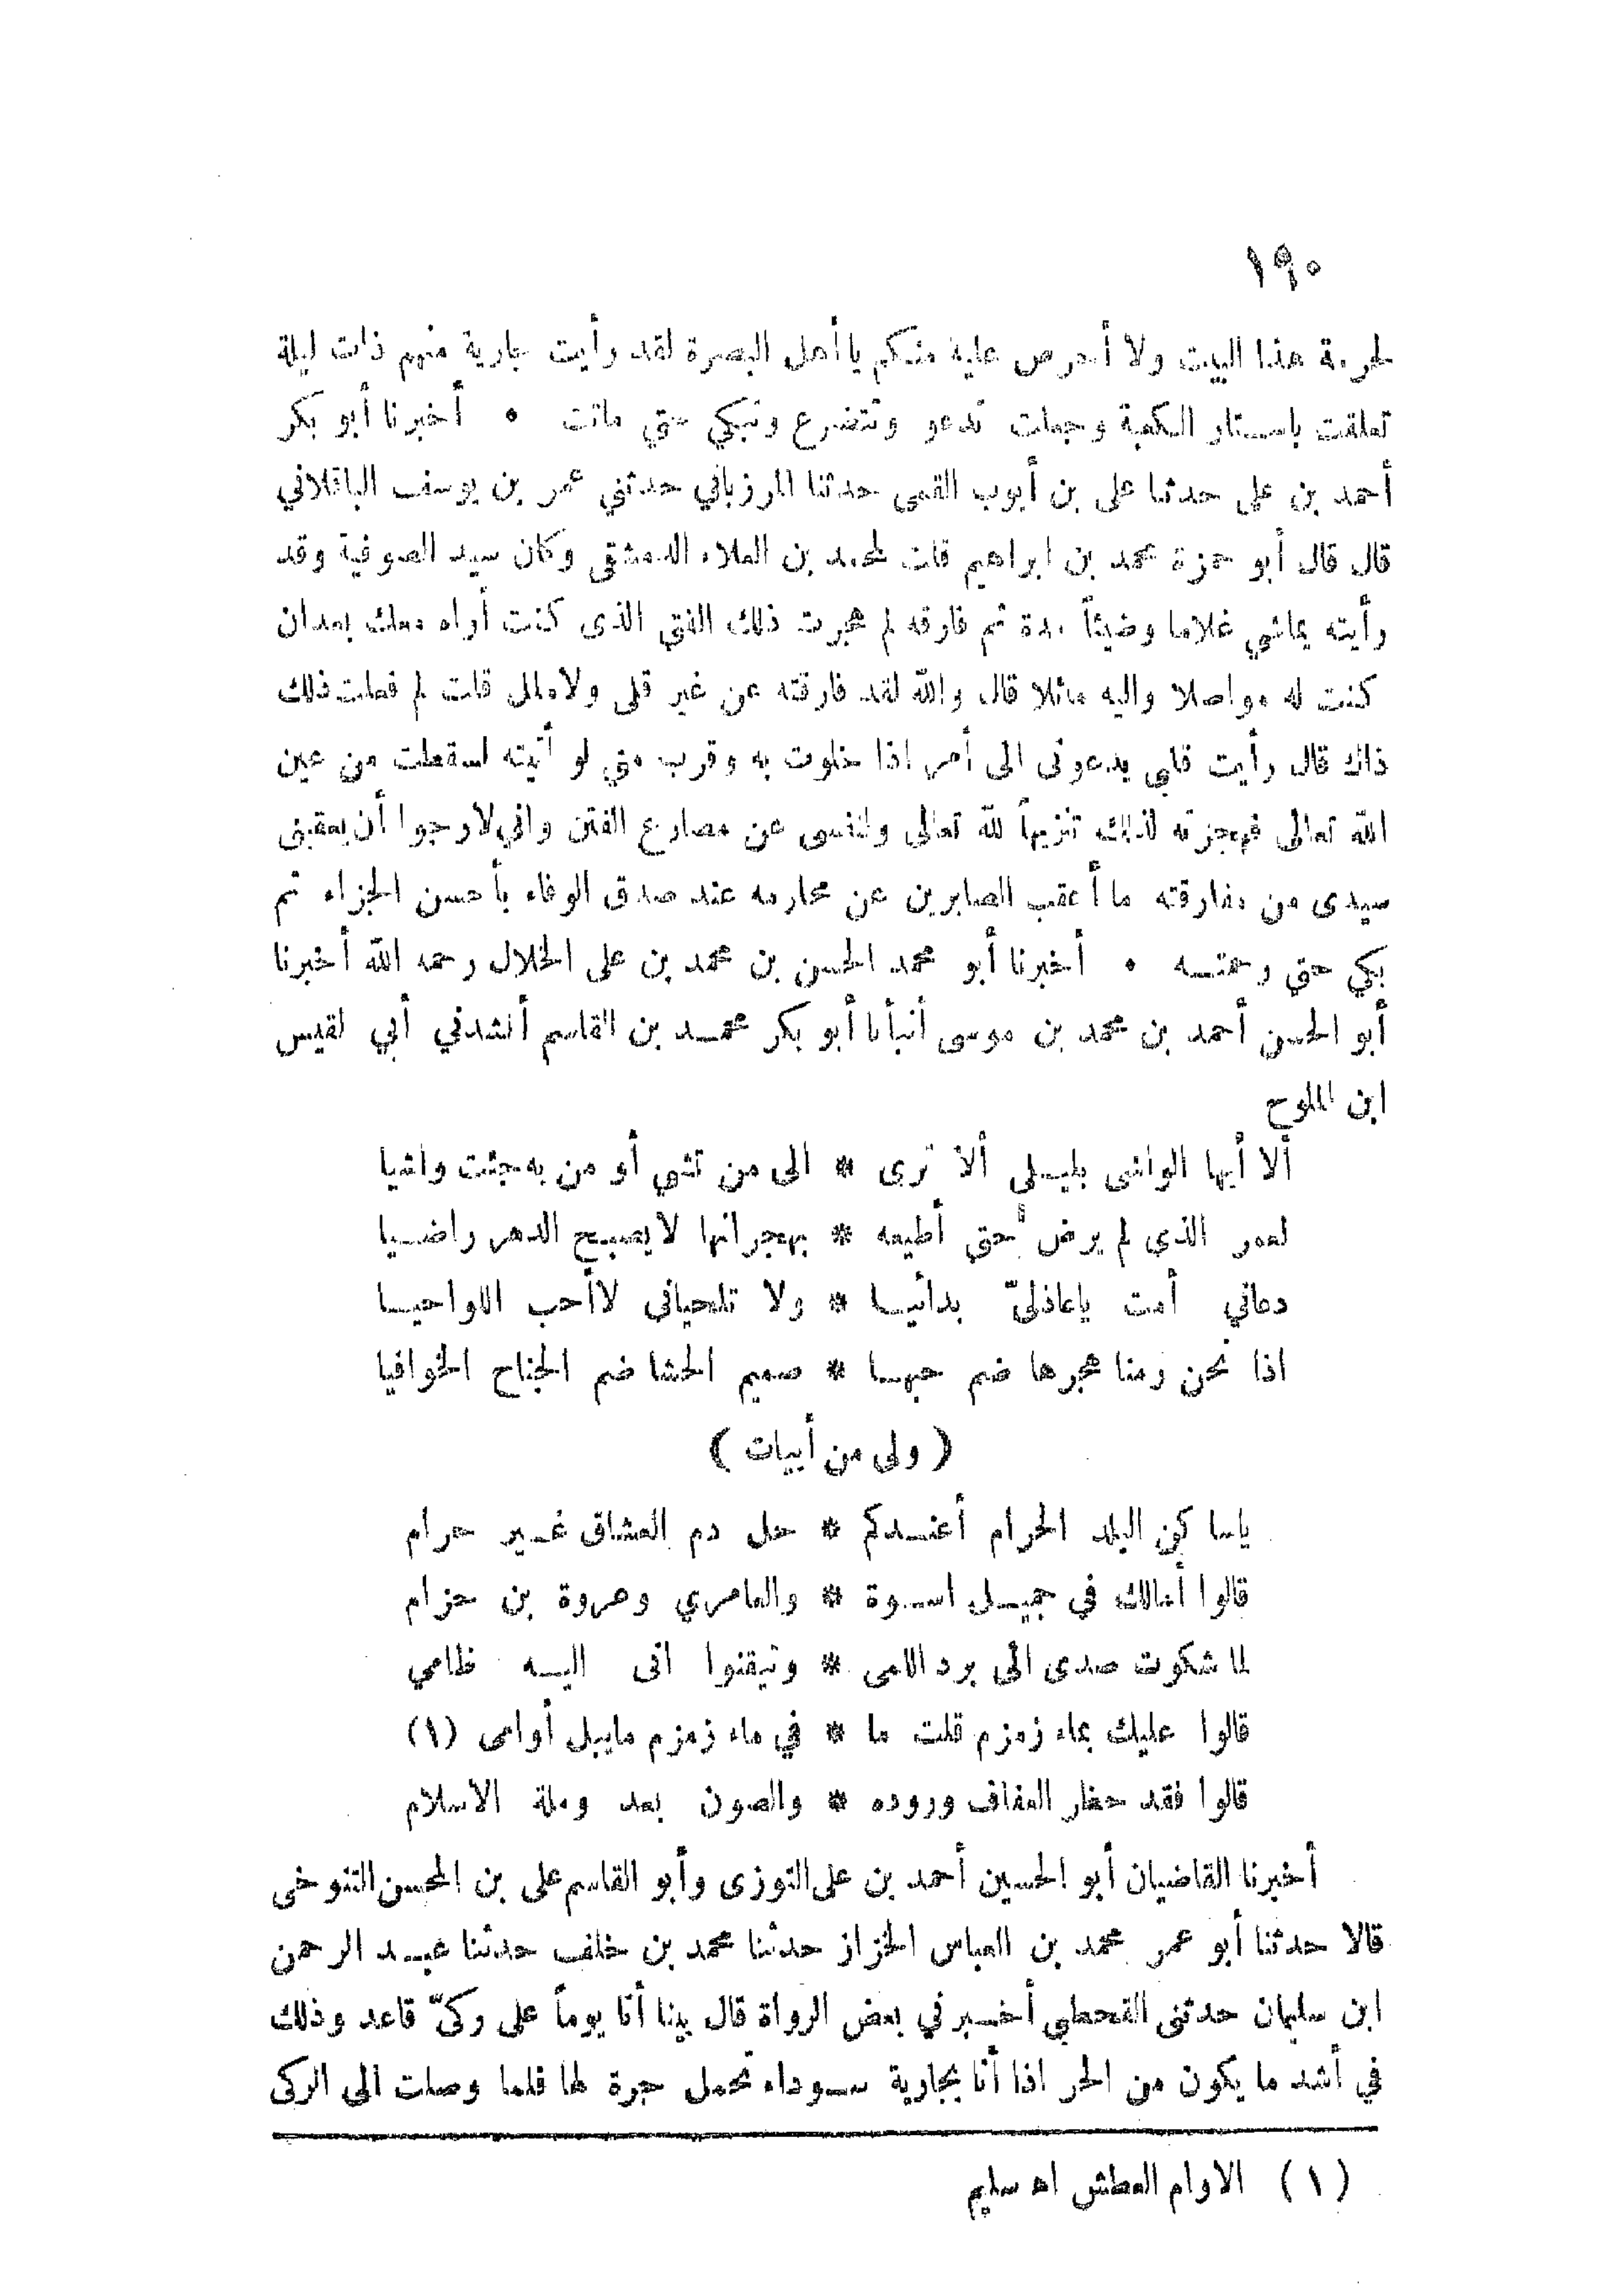 ١٩٠
لحرمة هذا البيت ولا أحرص عليه منكم يا أهل البصرة لقد رأيت جارية منهم ذات ليلة
تعلقت باستار الكعبة وجعلت تدعو وتتضرع وتبكي حتي ماتت • أخبرنا أبو بكر
أحمد بن على حدثنا على بن أيوب القمى حدثنا المرزباني حدثني عمر بن يوسف الباقلاني
قال قال أبو حمزة محمد بن ابراهيم قلت لمحمد بن العلاء الدمشقى وكان سيد الصوفية وقد
رأيته يماشي غلاما وضيئاً مدة ثم فارقه لم هجرت ذلك الفتى الذى كنت أراه معك بعد ان
كنت له مواصلا واليه مائلا قال والله لقد فارقته عن غير قلى ولا ملل قلت لم فعلت ذلك
ذاك قال رأيت قلبي يدعونى الى أمر اذا خلوت به وقرب مني لو أتيته لسقطت من عين
الله تعالى فهجرته لذلك تنزيهاً لله تعالى ولنفسى عن مصارع الفتن واني لارجوا أن يعقبنى
سيدى من مفارقته ما أعقب الصابرين عن محارمه عند صدق الوفاء بأحسن الجزاء ثم
بكي حتي رحمته • أخبرنا أبو محمد الحسن بن محمد بن على الخلال رحمه الله أخبرنا
أبو الحسن أحمد بن محمد بن موسى أنبأنا أبو بكر محمد بن القاسم أنشدني أبي لقيس
ابن الملوح
ألا أيها الواشى بليلى ألا ترى * الى من تشي أو من به جئت واشيا
لعمر الذى لم يرض حتي أطيعه * بهجرانها لا يصبح الدهر راضيا
دعاني أمت يا عاذليّ بدائيا * ولا تلحيانى لا أحب اللواحيا
اذا نحن رمنا هجرها ضم حبها * صميم الحشا ضم الجناح الخوافيا
( ولى من أبيات )
يا ساكن البلد الحرام أعندكم * حل دم العشاق غير حرام
قالوا أمالك في جميل اسوة * والعامري وعروة بن حزام
لما شكوت صدى الى برد اللمى * وتيقنوا انى اليه ظامي
قالوا عليك بماء زمزم قلت ما * في ماء زمزم مايبل أوامى (١)
قالوا فقد حظر العفاف وروده * والصون بعد وملة الاسلام
أخبرنا القاضيان أبو الحسين أحمد بن على التوزى وأبو القاسم على بن المحسن التنوخى
قالا حدثنا أبو عمر محمد بن العباس الخزاز حدثنا محمد بن خلف حدثنا عبد الرحمن
ابن سليمان حدثنى القحطبي أخبرني بعض الرواة قال بينا أنا يوماً على ركىّ قاعد وذلك
في أشد ما يكون من الحر اذا أنا بجارية سوداء تحمل جرة لها فلما وصلت الى الركى
(١) الاوام العطش اه سليم